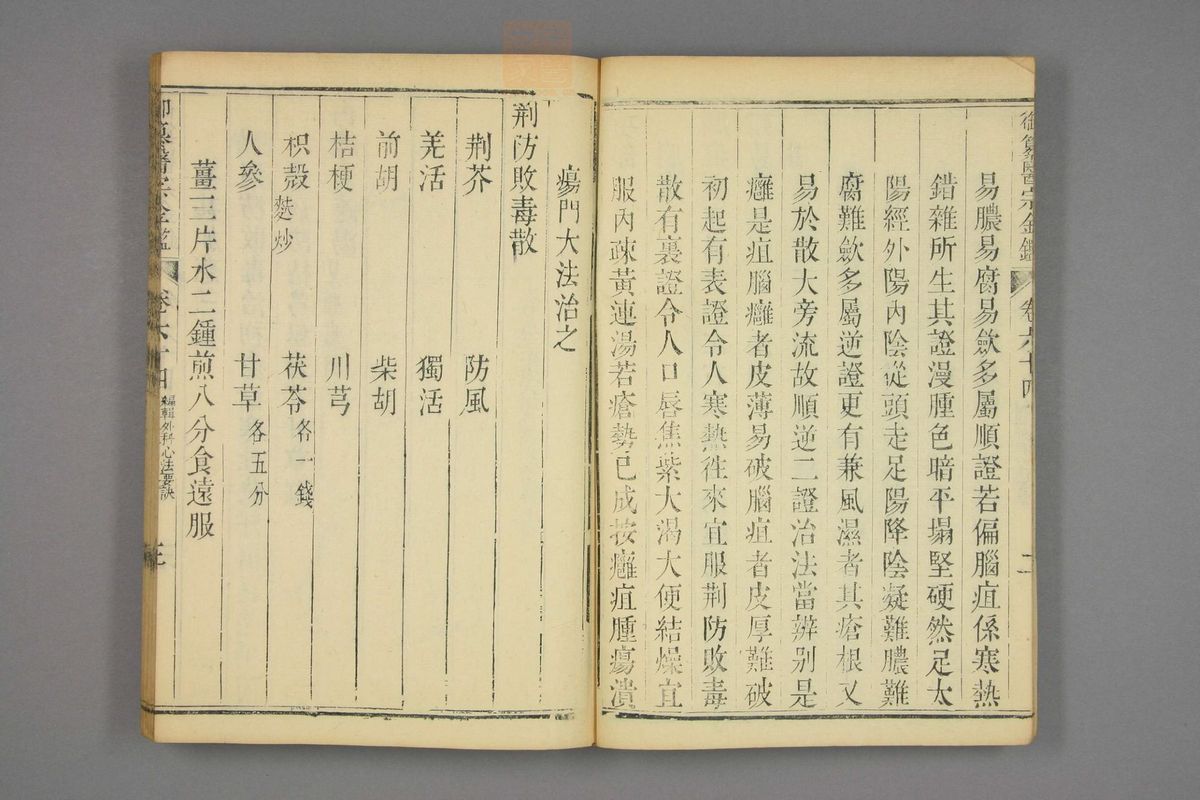 御纂醫宗金鑑 卷六十四 二
易膿易腐易歛多屬順證若偏腦疽係寒熱
錯雜所生其證漫腫色暗平塌堅硬然足太
陽經外陽內陰從頭走足陽降陰凝難膿難
腐難歛多屬逆證更有兼風濕者其瘡根又
易於散大旁流故順逆二證治法當辨別是
癰是疽腦癰者皮薄易破腦疽者皮厚難破
初起有表證令人寒熱徃來宜服荆防敗毒
散有裏證令人口唇焦紫大渴大便結燥宜
服內疎黃連湯若瘡勢已成按癰疽腫瘍潰
瘍門大法治之
荆防敗毒散
荆芥 防風
羌活 獨活
前胡 柴胡
桔梗 川芎
枳殼麩炒 茯苓各一錢
人參 甘草各五分
薑三片水二鍾煎八分食遠服
御纂醫宗金鑑 卷六十四 編輯外科心法要訣